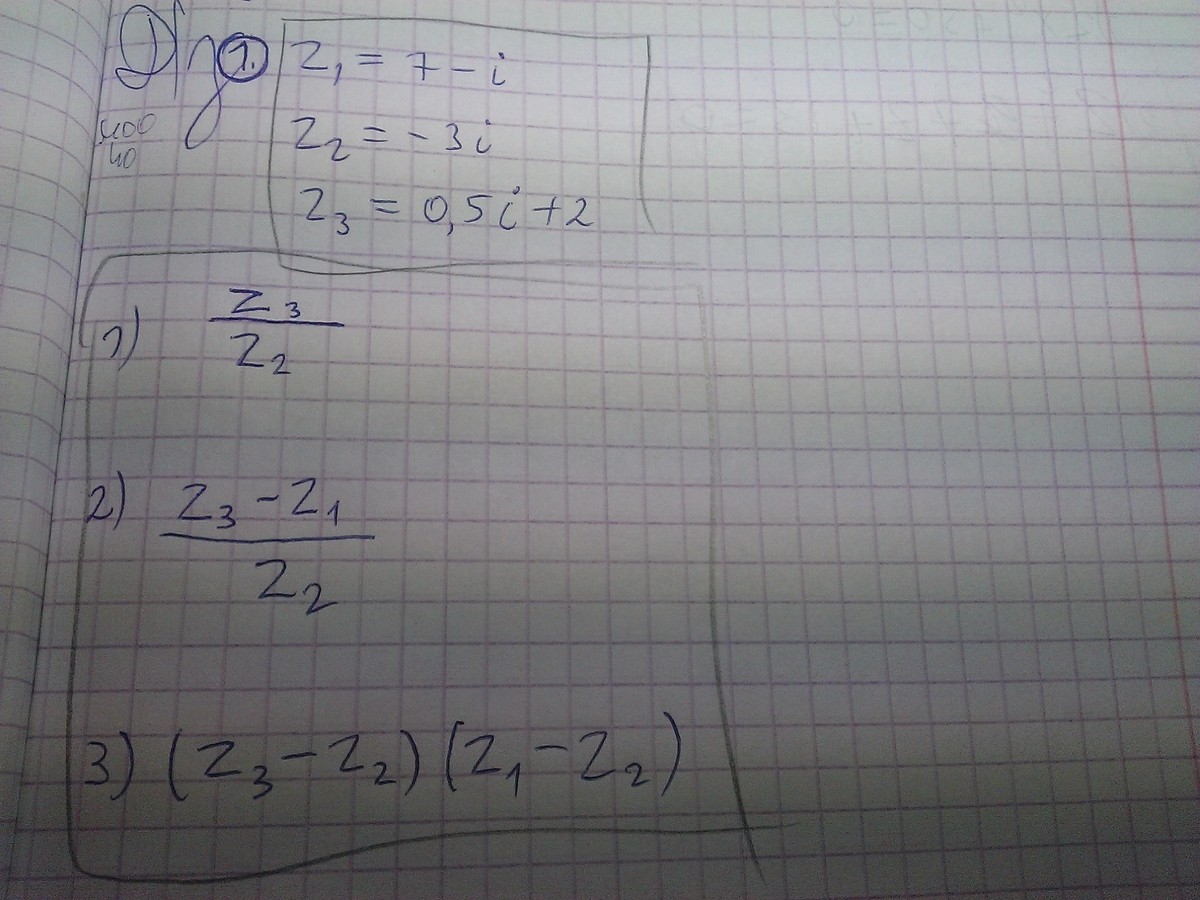 D/з 1. z₁ = 7 - i
z₂ = - 3i
z₃ = 0,5i + 2
1) z₃ / z₂
2) z₃ - z₁ / z₂
3) (z₃ - z₂) (z₁ - z₂)